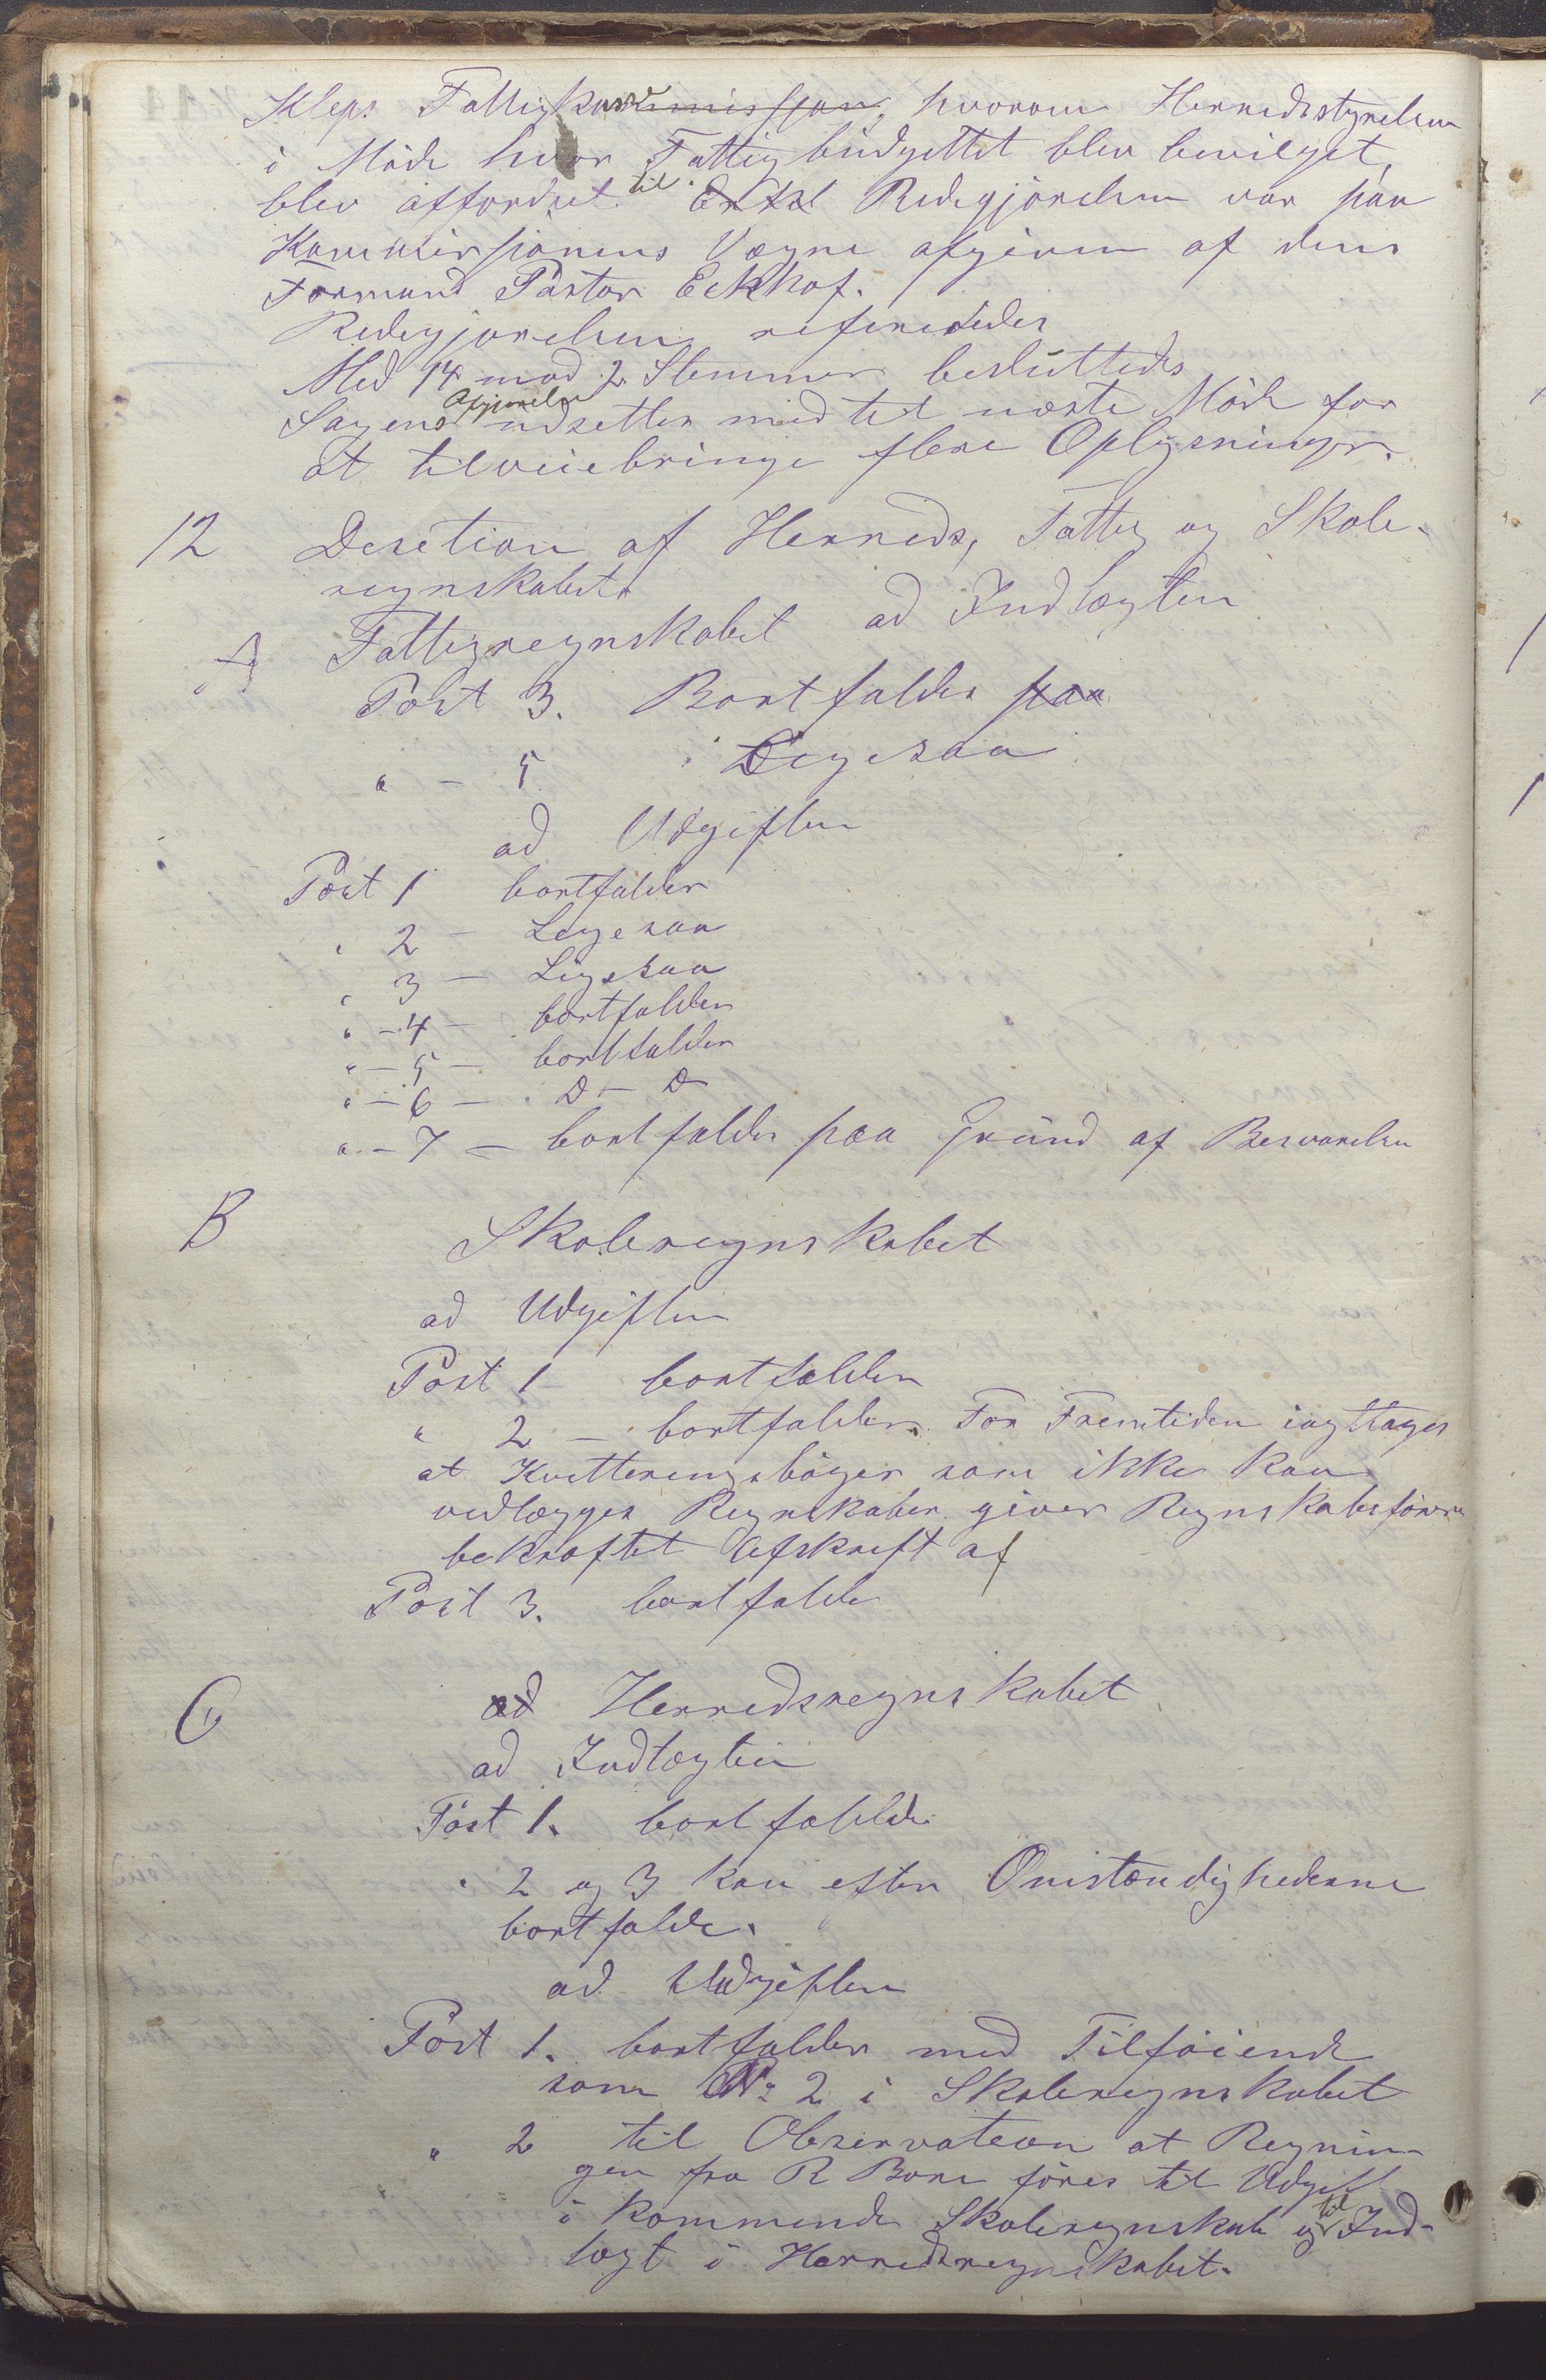 Kleps Fattigkasse, hvorom Herredsstyrelsen
i Möde hvor Fattigbüdgettet blev bevilget,
blev affordret til. Redegjørelsen var paa
Kommissjonens Vegne afgiven af dens
Formand Pastor Eckhof.
Redegjørelsen refereredes
Med 14 mod 2 Stemmer beslüttedes
Sagens Afgjørelse udsettes med til næste Möde for
at tilveiebringe flere Oplysninger.
12 Desetion af Herreds, Fattig og Skole-
regnskabet
A Fattigregnskabet ad Indtægten
Post 3. Bortfalder paa
" - 5 Ligesaa
ad Udgiften
Post 1 bortfalder
" 2 - Ligesaa
" 3 - Ligesaa
" - 4 - bortfalder
" - 5 - bortfalder
" - 6 - D - D
" - 7 - bortfalder paa Gründ af Besvarelsen
B Skoleregnskabet
ad Udgiften
Post 1 bortfalder
" 2 - bortfalder. For Fremtiden iagttages
at Kvitteringsbøger som ikke kan
vedlægges Regnskaber giver Regnskabsförer
bekræftet Afskrift af
Post 3. bortfalder
C ad Herredsregnskabet
ad Indtægten
Post 1. bortfalder
" 2 og 3 kan efter Omstændighederne
bortfalde.
ad Udgiften
Post 1. bortfalder med Tilføiende
som No 2 i Skoleregnskabet
" 2 til Observation at Regnin-
gen fra R Bore föres til Udgift
i kommende Skoleregnskab og til Ind-
tægt i Herredsregnskabet.